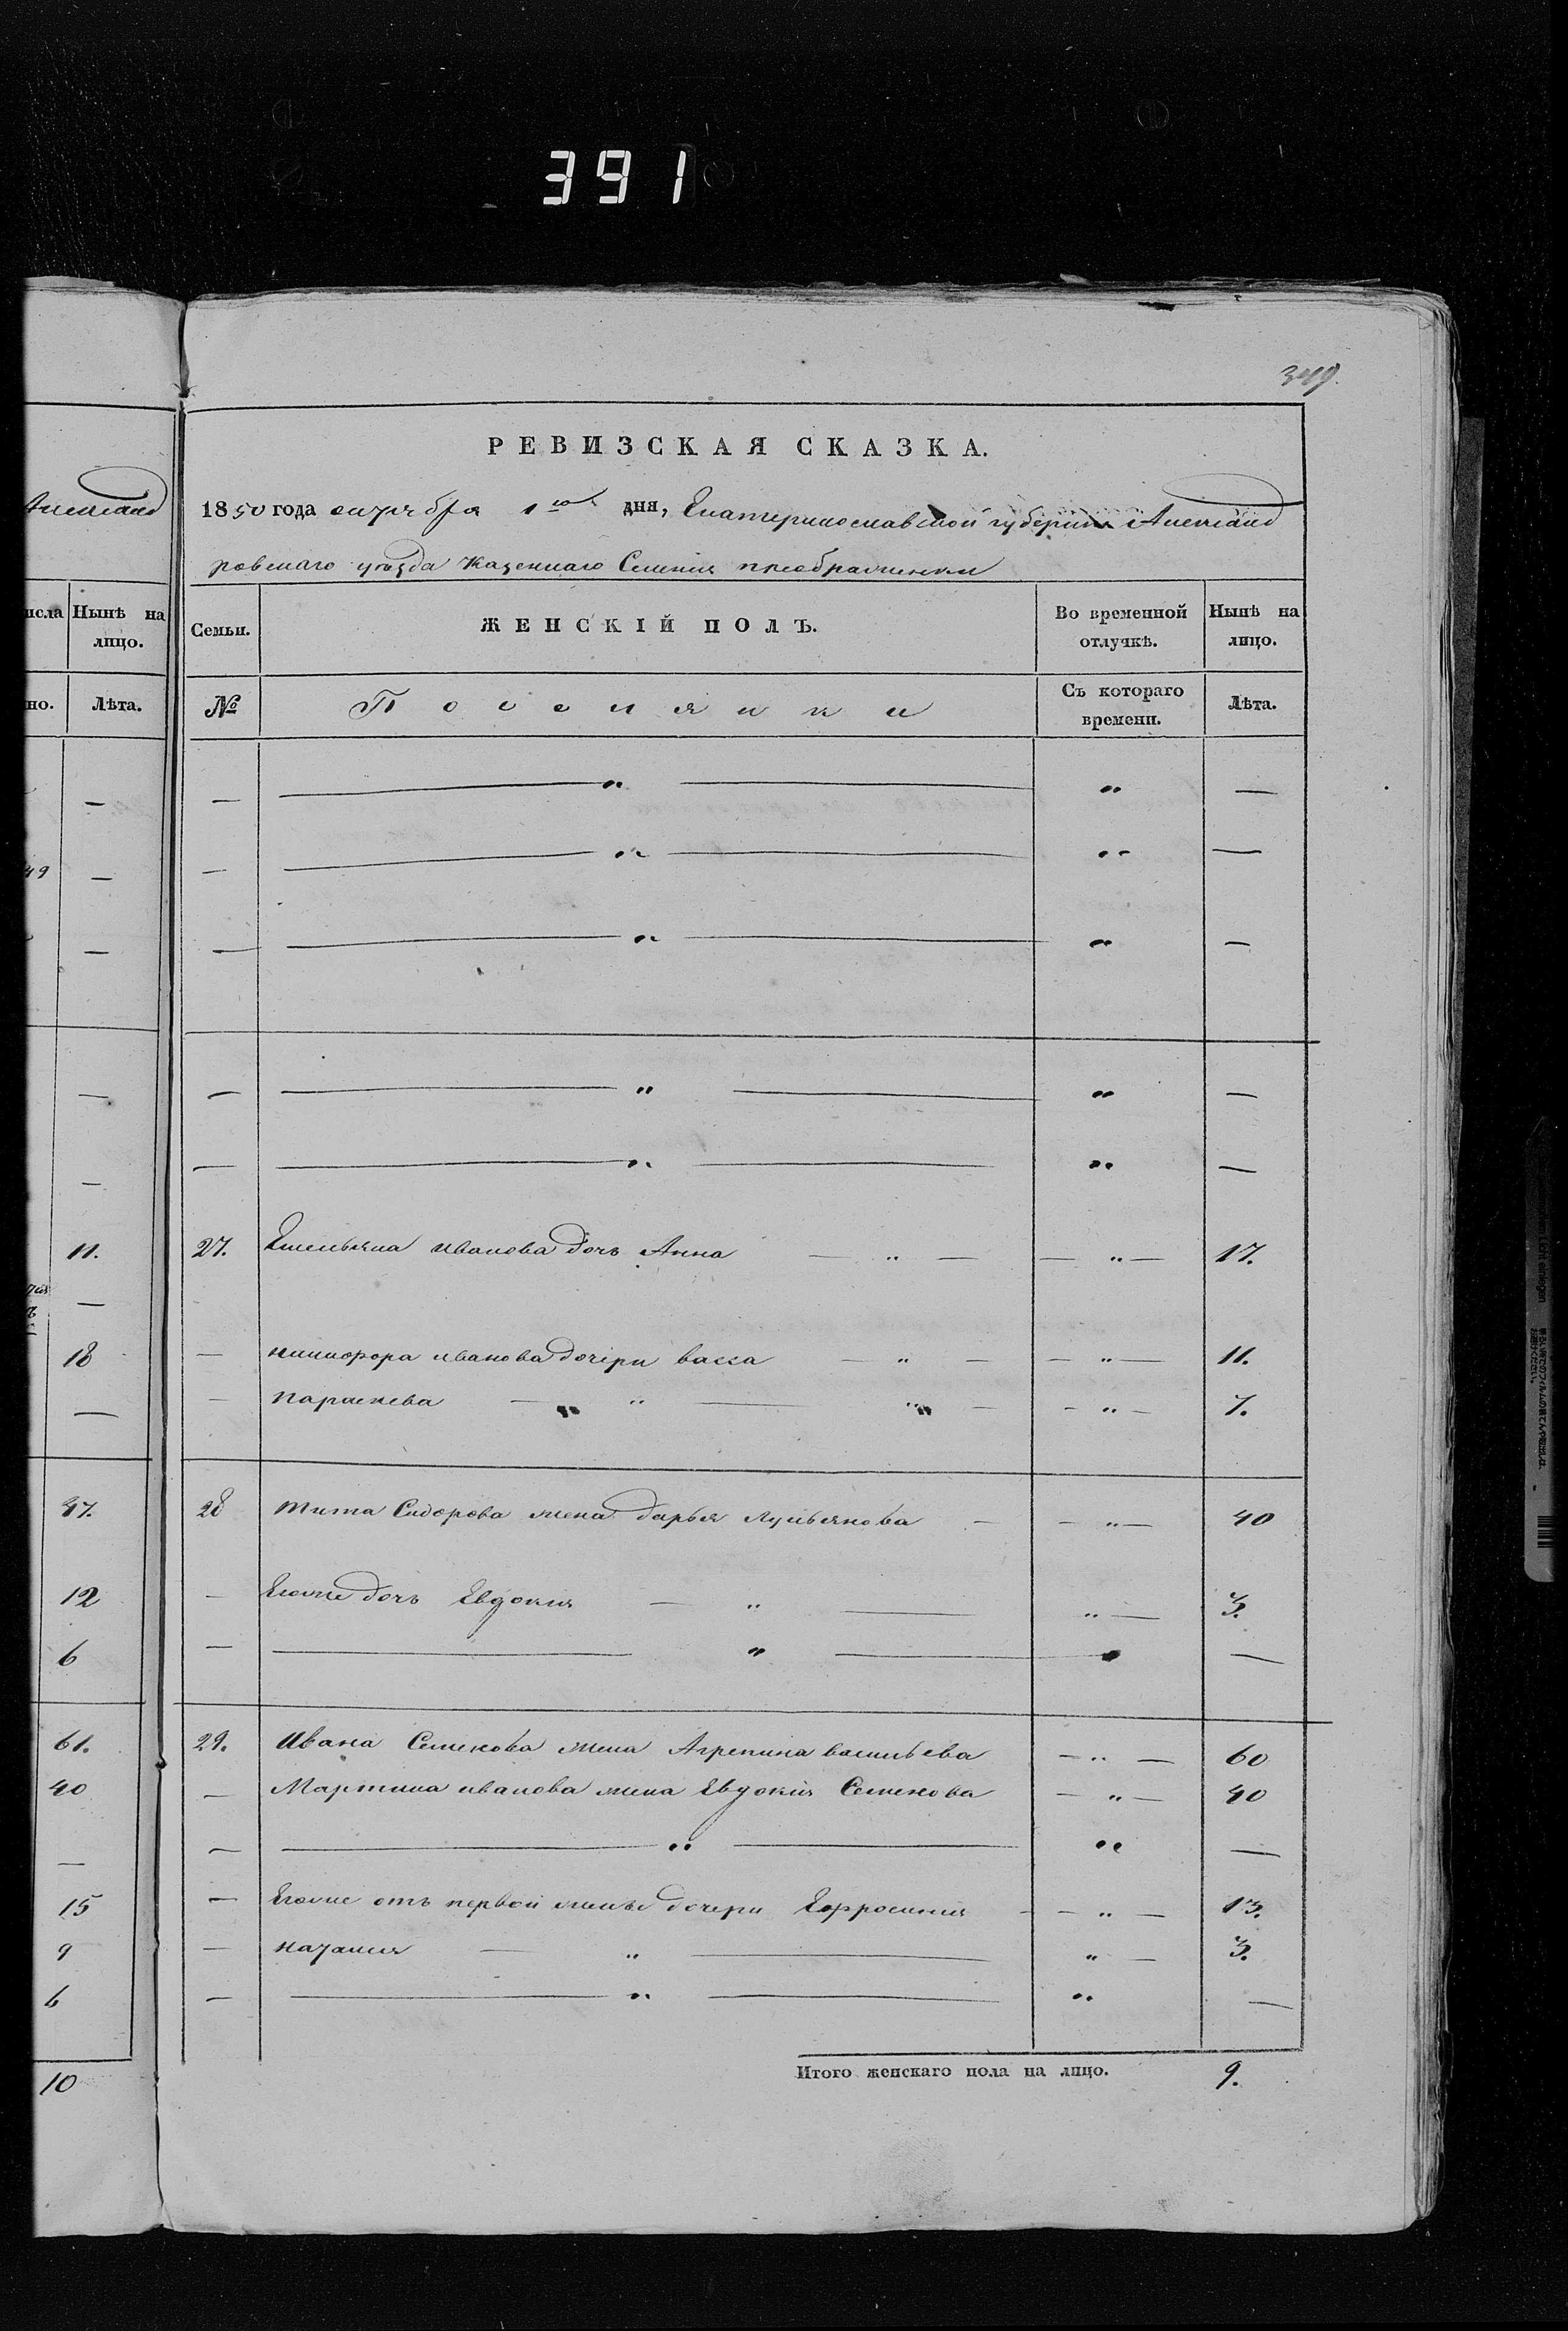 391
349.
Александ
РЕВИЗСКАЯ СКАЗКА.
1850 года октября 1го дня, Екатеринославской губернии Александ
ровскаго уѣзда Казеннаго Селенія преображенки
Нынѣ на лицо.
Лѣта.
Семьи. ЖЕНСКІЙ ПОЛЪ. Во временной отлучкѣ. Нынѣ на лицо.
№ Поселянки Съ котораго времени. Лѣта.
— — „ — „ —
— — „ — „ —
49 —
— — „ — „ —
— — „ — „ —
— — „ — „ —
11. 27. Емельяна иванова дочь Анна — „ — — „ — 17.
18 — никифора иванова дочери васса — „ — — „ — 11.
— параскева — „ „ — „ — — „ — 7.
47. 28 тита Сидорова жена дарья лукьянова — — „ — 40
12 — Егоже дочь Евдокия — „ — „ — 3.
6 — — „ — „ —
61. 29. Ивана Семенова жена Агрепина васильева — „ — 60
40 — Мартина иванова жена Евдокия Семенова — „ — 40
— — „ — „ —
15 — Егоже отъ первой жены дочери Ефросиния — — „ — 13.
9 — наталия — „ — „ — 3.
6 — — „ — „ —
10 Итого женскаго пола на лицо. 9.